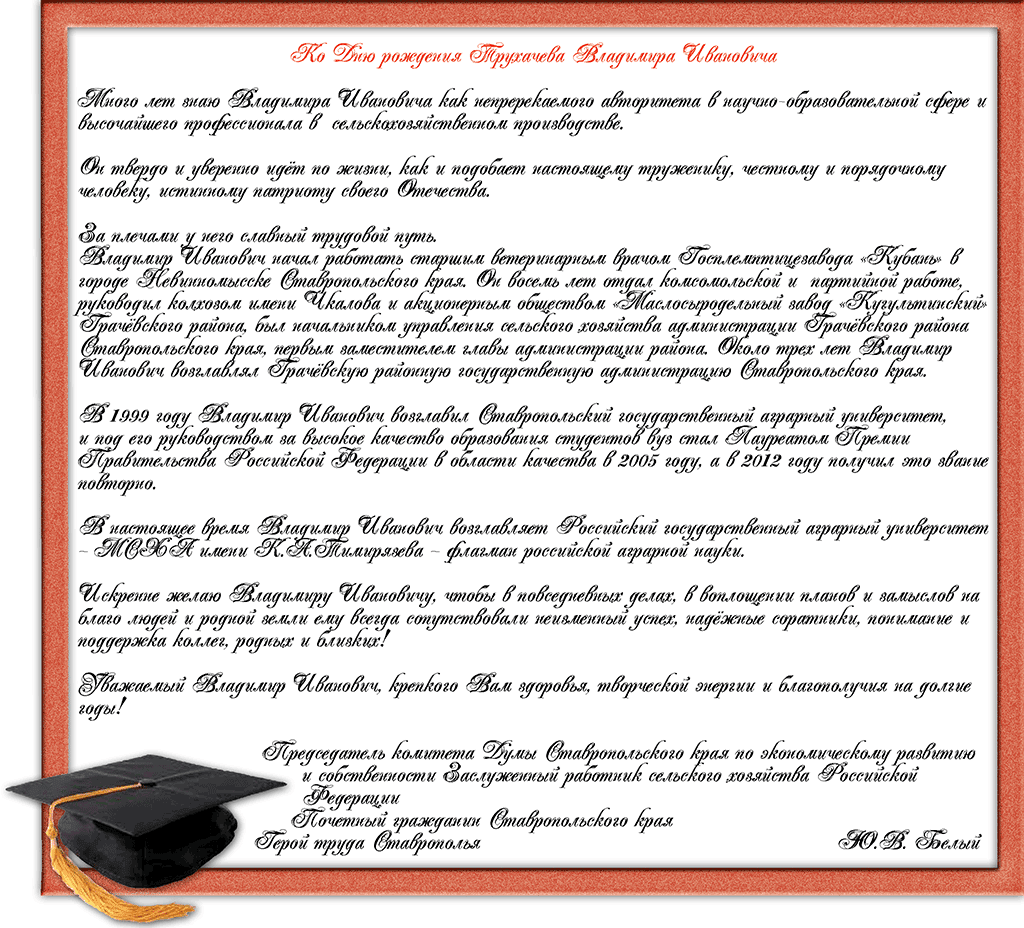 Ко Дню рождения Трухачева Владимира Ивановича
Много лет знаю Владимира Ивановича как непререкаемого авторитета в научно-образовательной сфере и
высочайшего профессионала в сельскохозяйственном производстве.
Он твердо и уверенно идёт по жизни, как и подобает настоящему труженику, честному и порядочному
человеку, истинному патриоту своего Отечества.
За плечами у него славный трудовой путь.
Владимир Иванович начал работать старшим ветеринарным врачом Госплемптицезавода «Кубань» в
городе Невинномысске Ставропольского края. Он восемь лет отдал комсомольской и партийной работе,
руководил колхозом имени Чкалова и акционерным обществом «Маслосыродельный завод «Кугультинский»
Грачёвского района, был начальником управления сельского хозяйства администрации Грачёвского района
Ставропольского края, первым заместителем главы администрации района. Около трех лет Владимир
Иванович возглавлял Грачёвскую районную государственную администрацию Ставропольского края.
В 1999 году Владимир Иванович возглавил Ставропольский государственный аграрный университет,
и под его руководством за высокое качество образования студентов вуз стал Лауреатом Премии
Правительства Российской Федерации в области качества в 2005 году, а в 2012 году получил это звание
повторно.
В настоящее время Владимир Иванович возглавляет Российский государственный аграрный университет
– МСХА имени К.А.Тимирязева – флагман российской аграрной науки.
Искренне желаю Владимиру Ивановичу, чтобы в повседневных делах, в воплощении планов и замыслов на
благо людей и родной земли ему всегда сопутствовали неизменный успех, надёжные соратники, понимание и
поддержка коллег, родных и близких!
Уважаемый Владимир Иванович, крепкого Вам здоровья, творческой энергии и благополучия на долгие
годы!
Председатель комитета Думы Ставропольского края по экономическому развитию
и собственности Заслуженный работник сельского хозяйства Российской
Федерации
Почетный гражданин Ставропольского края
Герой труда Ставрополья Ю.В. Белый